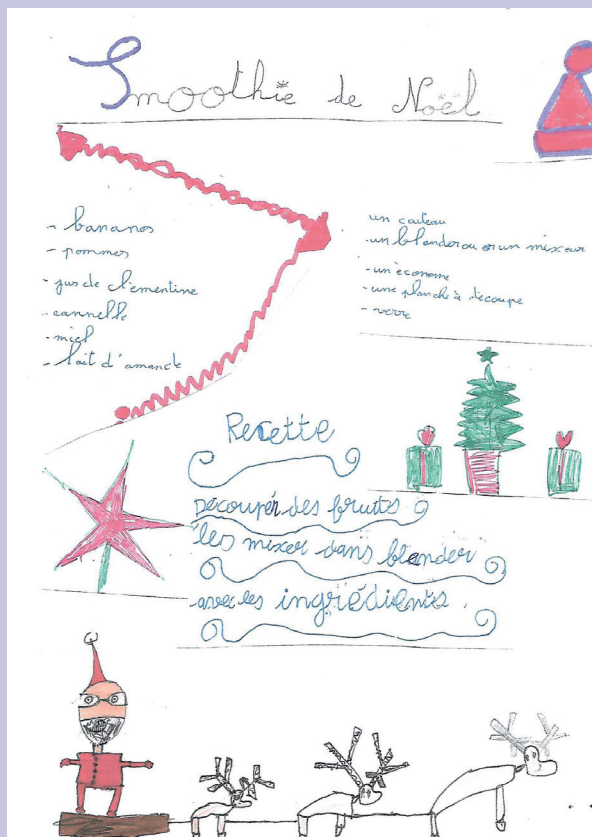 Smoothie de Noël
- bananes
- pommes
- jus de clémentine
- cannelle
- miel
- lait d'amande
un couteau
- un blender ou un mixeur
- un économe
- une planche à découpe
- verre
Recette
Découper des fruits
les mixer dans blender
avec les ingrédients.